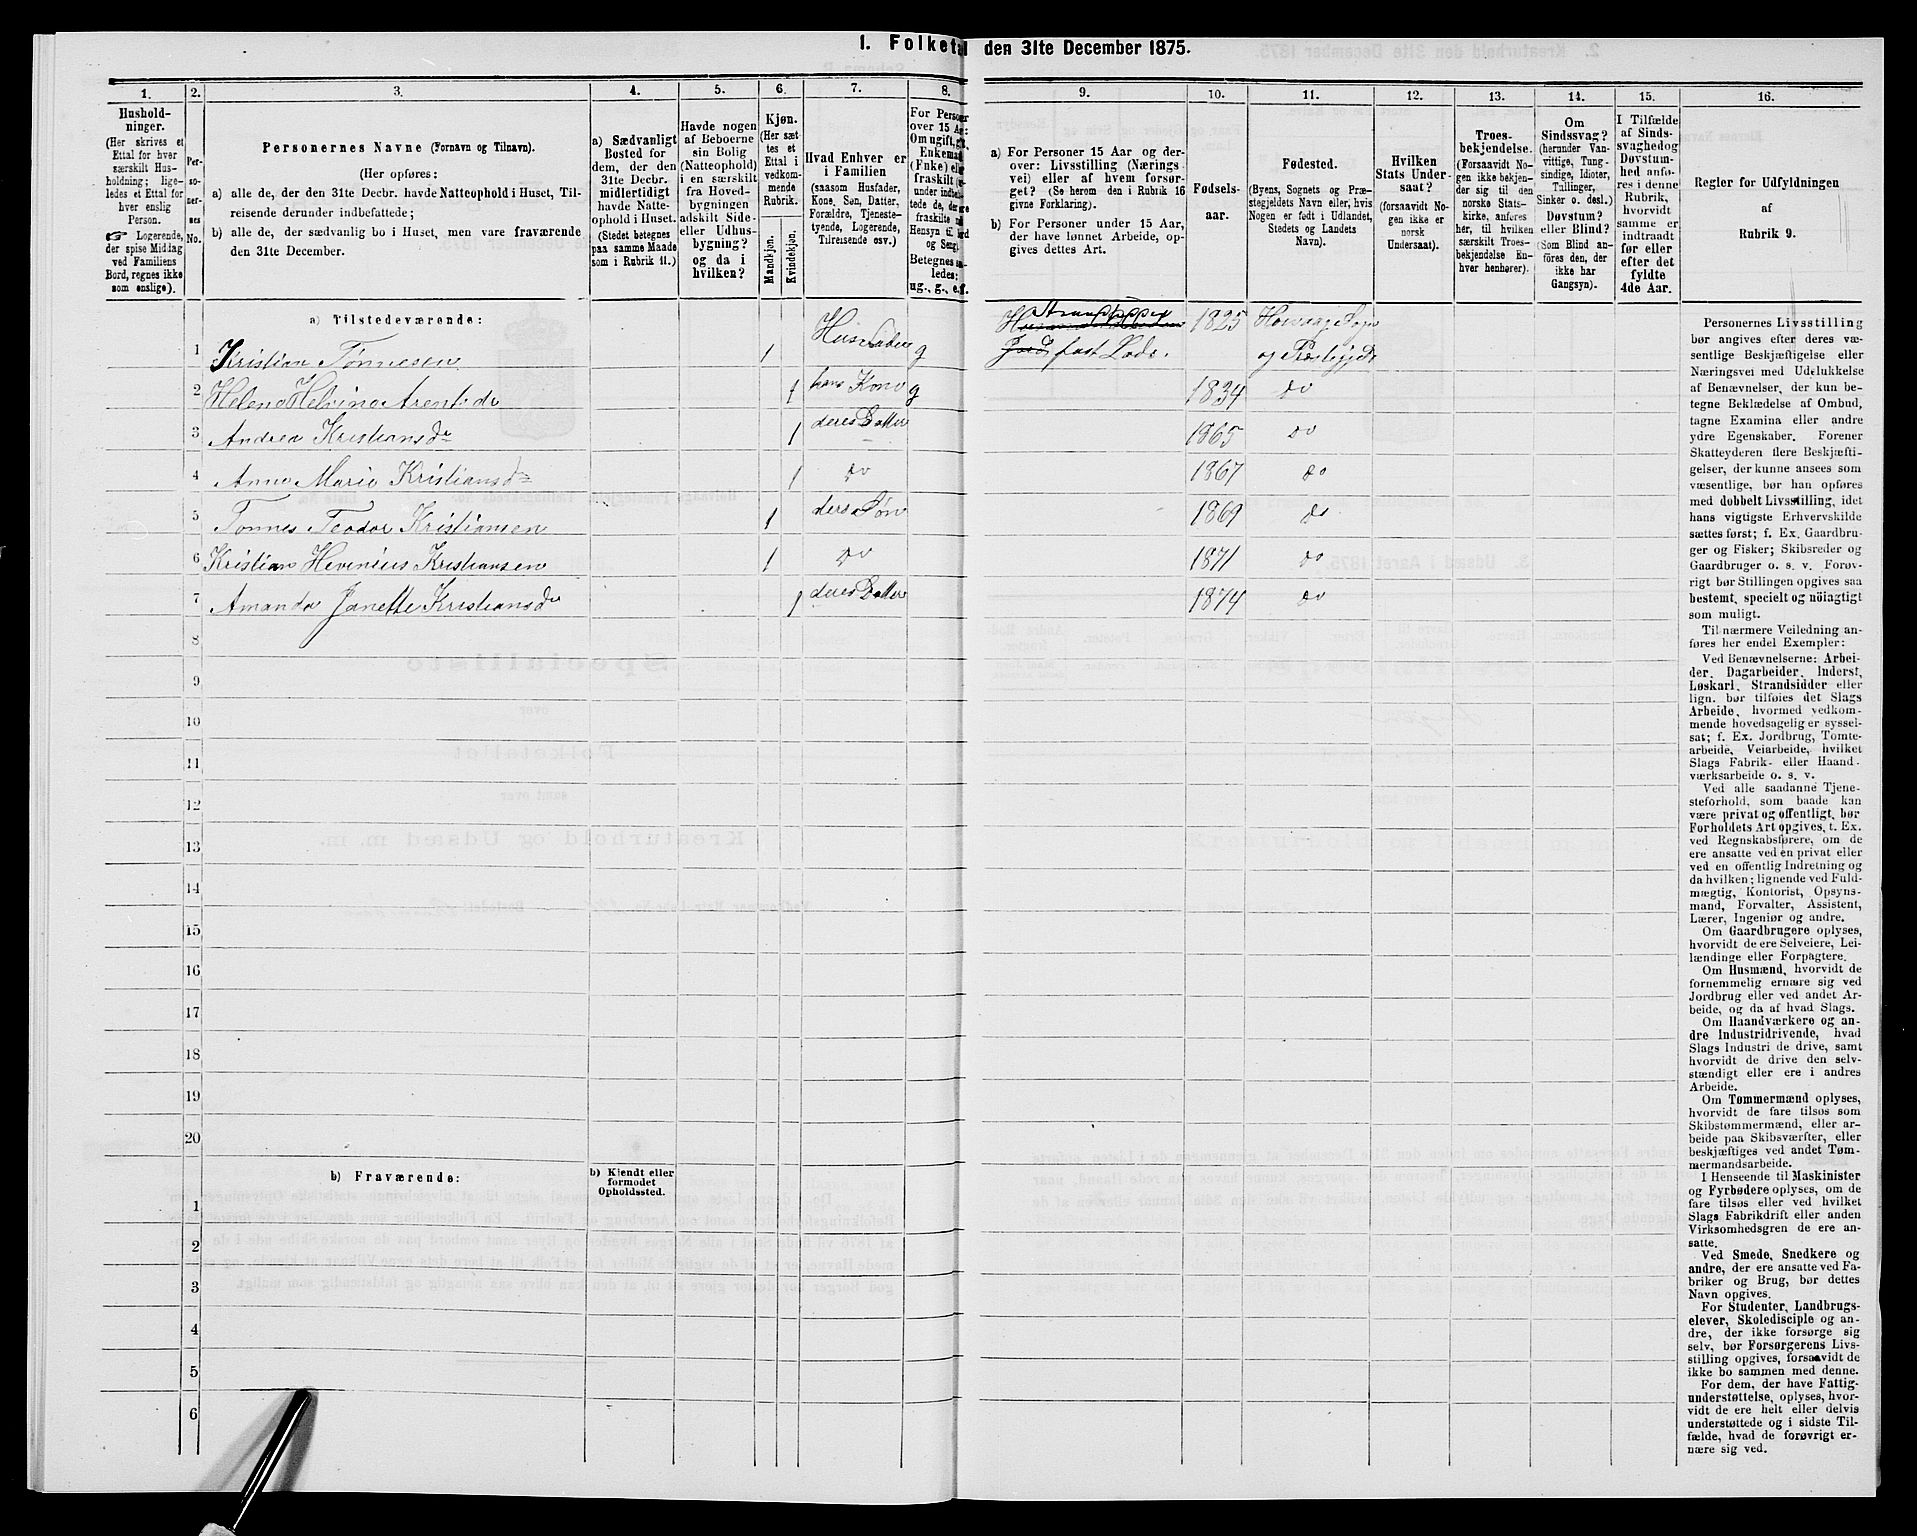 1. Folketal den 31te December 1875.
1. 2. 3. 4. 5. 6. 7. 8. 9. 10. 11. 12. 13. 14. 15. 16.
Hushold-
ninger.
(Her skrives et
Ettal for hver
særskilt Hus-
holdning; lige-
ledes et Ettal for
hver enslig
Person.
☞ Logerende,
der spise Middag
ved Familiens
Bord, regnes ikke
som enslige).
Per-
so-
ner-
nes
No.
Personernes Navne (Fornavn og Tilnavn).
(Her opføres:
a) alle de, der den 31te Decbr. havde Natteophold i Huset, Til-
reisende derunder indbefattede;
b) alle de, der sædvanlig bo i Huset, men vare fraværende
den 31te December.
a) Sædvanligt
Bosted for
dem, der den
31te Decbr.
midlertidigt
havde Natte-
ophold i Huset.
(Stedet betegnes
paa samme Maade
som i Rubrik 11.)
Havde nogen
af Beboerne
sin Bolig
(Natteophold)
i en særskilt
fra Hoved-
bygningen
adskilt Side-
eller Udhus-
bygning?
og da i
hvilken?
Kjøn.
(Her sæt
tes et
Ettal i
vedkom-
mende
Rubrik.
Mandkjøn.
Kvindekjøn.
Hvad Enhver er
i Familien
(saasom Husfader,
Kone, Søn, Datter,
Forældre, Tjeneste-
tyende, Logerende,
Tilreisende osv.)
For Personer
over 15 Aar:
Om ugift, gift,
Enkemand
(Enke) eller
fraskilt
under indbefat-
tede de, der ere
fraskilte
Hensyn til Bord
og Seng).
Betegnes saa-
ledes:
ug., g., e., f.
a) For Personer 15 Aar og der-
over: Livsstilling (Nærings
vei) eller af hvem forsør-
get? (Se herom den i Rubrik 16
givne Forklaring).
b) For Personer under 15 Aar,
der have lønnet Arbeide, op-
gives dettes Art.
Fødsels-
aar.
Fødested.
(Byens, Sognets og Præ-
stegjeldets Navn eller, hvis
Nogen er født i Udlandet,
Stedets og Landets
Navn).
Hvilken
Stats Under-
saat?
(forsaavidt No-
gen ikke er
norsk
Undersaat).
Troes-
bekjendelse.
(Forsaavidt No-
gen ikke bekjen-
der sig til den
norske Stats-
kirke, anføres
her, til hvilken
særskilt Troes-
bekjendelse En-
hver henhører).
Om
Sindssvag?
(herunder Van-
vittige, Tung-
sindige, Idioter,
Tullinger,
Sinker o. desl.)
Døvstum?
eller Blind?
(Som Blind an-
føres den, der
ikke har
Gangsyn).
I Tilfælde
af Sinds-
svaghed og
Døvstum-
hed anfø-
res i denne
Rubrik,
hvorvidt
samme er
indtraadt
før eller
efter det
fyldte
4de Aar.
Regler for Udfyldningen
af
Rubrik 9.
a) Tilstedeværende:
1 Kristian Tønnesen 1 Husfader g Husmand Jord fast Lods. 1825 Hovaag Sogn og Præstegjeld
2 Helene Helvine Arentsdr 1 hans Kone g 1834 do
3 Andrea Kristiansdr 1 deres Datter 1865 do
4 Anne Marie Kristiansdr 1 do 1867 do
5 Tønnes Teodor Kristiansen 1 deres Søn 1869 do
6 Kristian Hevinius Kristiansen 1 do 1871 do
7 Amanda Janette Kristiansdr 1 deres Datter 1874 do
8
9
10
11
12
13
14
15
16
17
18
19
20
b) Fraværende:
b) Kjendt eller
formodet
Opholdssted.
1
2
3
4
5
6
Personernes Livsstilling
bør angives efter deres væ-
sentlige Beskjæftigelse eller
Næringsvei med Udelukkelse
af Benævnelser, der kun be-
tegne Beklædelse af Ombud,
tagne Examina eller andre
ydre Egenskaber. Forener
Skatteyderen flere Beskjæfti-
gelser, der kunne ansees som
væsentlige, bør han opføres
med dobbelt Livsstilling, idet
hans vigtigste Erhvervskilde
sættes først; f. Ex. Gaardbru-
ger og Fisker; Skibsreder og
Gaardbruger o. s. v. Forøv-
rigt bør Stillingen opgives saa
bestemt, specielt og nöiagtigt
som muligt.
Til nærmere Veiledning an-
føres her endel Exempler:
Ved Benævnelserne: Arbei-
der, Dagarbeider, Inderst,
Løskarl, Strandsidder eller
lign. bør tilføies det Slags
Arbeide, hvormed vedkom-
mende hovedsagelig er syssel-
sat; f. Ex. Jordbrug, Tomte-
arbeide, Veiarbeide, hvilket
Slags Fabrik- eller Haand-
værksarbeide o. s. v.
Ved alle saadanne Tjene-
steforhold, som baade kan
være privat og offentligt, bør
Forholdets Art opgives, t. Ex.
ved Regnskabsførere, om de
ere ansatte ved en privat eller
ved en offentlig Indretning og
da hvilken; lignende ved Fuld-
mægtig, Kontorist, Opsyns-
mand, Forvalter, Assistent,
Lærer, Ingeniør og andre.
Om Gaardbrugere oplyses,
hvorvidt de ere Selveiere, Lei-
lændinge eller Forpagtere.
Om Husmænd, hvorvidt de
fornemmelig ernære sig ved
Jordbrug eller ved andet Ar-
beide, og da af hvad Slags.
Om Haandværkere og an-
dre Industridrivende, hvad
Slags Industri de drive, samt
hvorvidt de drive den selv-
stændigt eller ere i andres
Arbeide.
Om Tømmermænd oplyses,
hvorvidt de fare tilsøs som
Skibstømmermænd, eller ar-
beide paa Skibsværfter, eller
beskjæftiges ved andet Tøm-
mermandsarbeide.
I Henseende til Maskinister
og Fyrbødere oplyses, om de
fare tilsøs eller ved hvilket
Slags Fabrikdrift eller anden
Virksomhedsgren de ere an-
satte.
Ved Smede, Snedkere og
andre, der ere ansatte ved Fa-
briker og Brug, bør dettes
Navn opgives.
For Studenter, Landbrugs-
elever, Skoledisciple og an-
dre, der ikke forsørge sig
selv, bør Forsørgerens Livs-
stilling opgives, forsaavidt de
ikke bo sammen med denne.
For dem, der have Fattig-
understøttelse, oplyses, hvor-
vidt de ere helt eller delvis
understøttede og i sidste Til-
fælde, hvad de forøvrigt er-
nære sig ved.